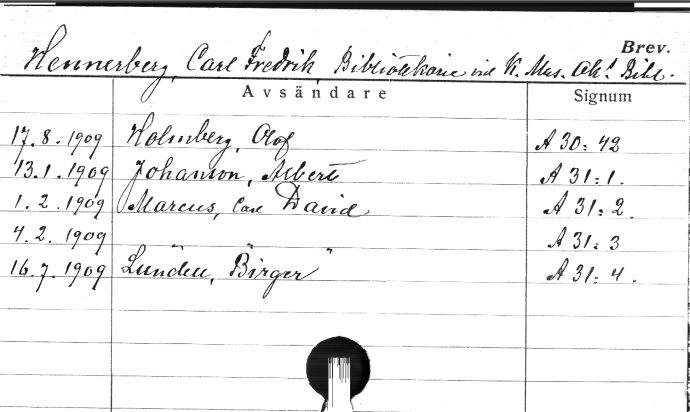 Brev.
Hennerberg, Carl Fredrik, Bibliotekarie vid K. Mus. Ak:s Bibl.
Avsändare Signum
17.8.1909 Holmberg, Olof A 30:42
13.1.1909 Johanson, Albert A 31:1.
1.2.1909 Marcus, Carl David A 31:2.
4.2.1909 " " " A 31:3
16.7.1909 Lundén, Birger A 31:4.